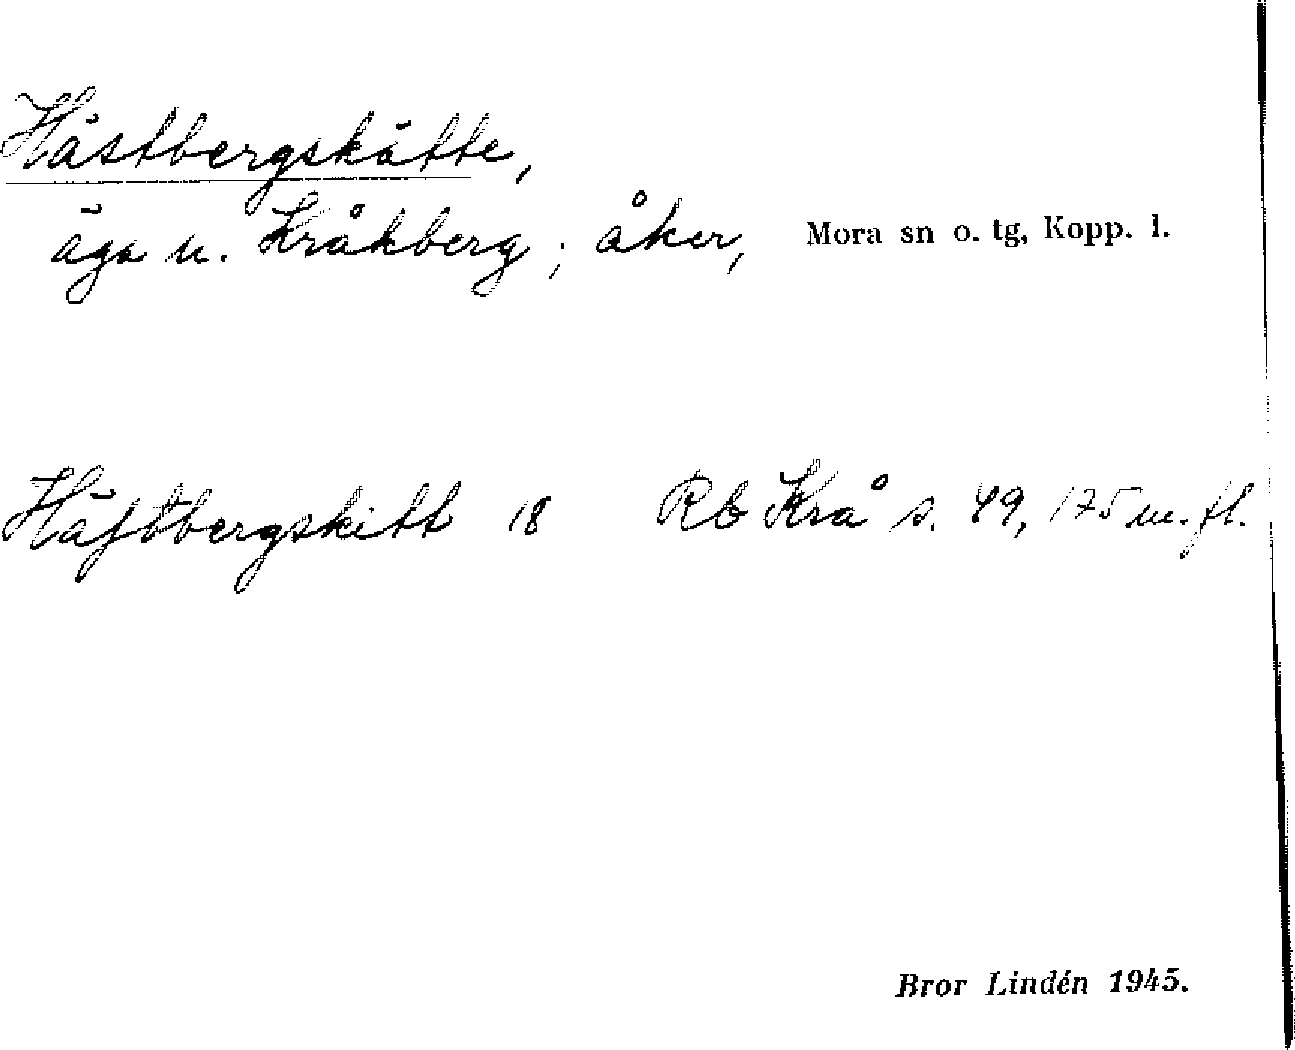 Hästbergskätte,
äga u. Kråkberg; åker, Mora sn o. tg, Kopp. l.
Häſtbergskitt 18 Rb Krå s. 49, 175 m. fl.
Bror Lindén 1945.